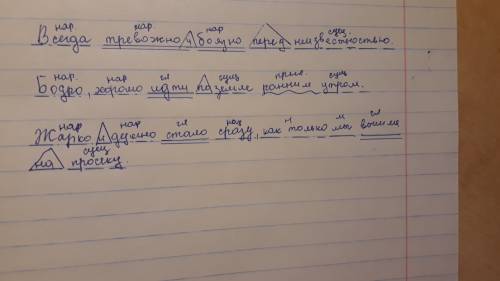 нар нар нар сущ.
Всегда тревожно и боязно перед неизвестностью.
нар. нар гл сущ прил. сущ
Бодро, хорошо идти по земле ранним утром.
нар нар гл нар Н м гл
Жарко и душно стало сразу, как только мы вышли
сущ
на просеку.